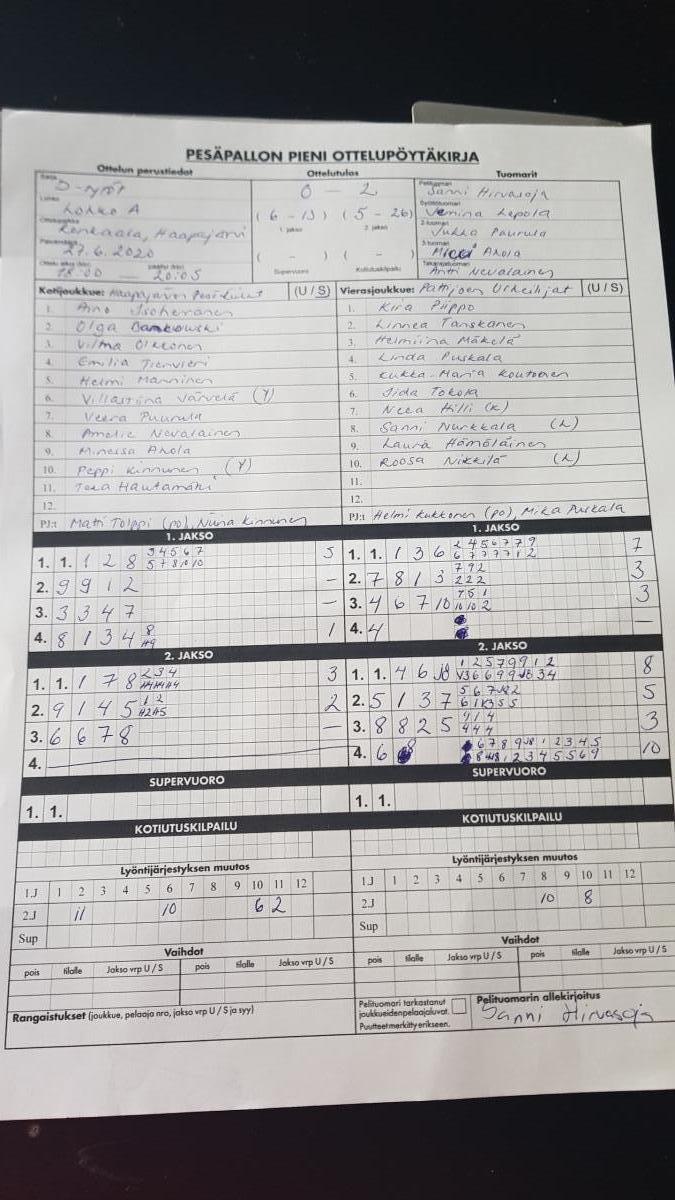 PESÄPALLON PIENI OTTELUPÖYTÄKIRJA
Ottelun perustiedot Ottelutulos Tuomarit
D-tytöt 0 - 2 Sanni Hirvasoja
Lohko A (6 - 13) (5 - 26) Venina Lepola
1. jakso 2. jakso
Kenkaala, Haapajärvi Jukka Puurula
27.6.2020 ( - ) ( - ) Ahola
18:00 — 20:05 Supervuoro Kotiutuskilpailu Antti Nevalainen
Kotijoukkue: Haapajärven Pesä-Kiilat (U / S) Vierasjoukkue: Pattijoen Urheilijat (U / S)
1. Aino 1. Kira Piippo
2. Olga Dankowski 2. Linnea Tanskanen
3. Vilma Okkonen 3. Helmiina Mäkelä
4. Emilia 4. Linda Puskala
5. Helmi Manninen 5. Kukka-Maria Koutonen
6. Villastiina Värvelä (Y) 6. Iida Tokola
7. Veera Puurula 7. Neea Hilli (K)
8. Amelie Nevalainen 8. Sanni Nurkkala (L)
9. Minessa Ahola 9. Laura Hämäläinen
10. Peppi Kinnunen (Y) 10. Roosa Nikkilä (L)
11. Hautamäki 11.
12. 12.
PJ:t Matti Tolppi (po), Niina Kinnunen PJ:t Helmi Kukkonen (po), Mika Puskala
1. JAKSO 1. JAKSO
1. 1. 1 2 8 3 4 5 6 7 5 1. 1. 1 3 6 2 4 5 6 7 7 9 7
5 7 8 10 10 6 7 7 7 7 1 2
2. 9 9 1 2 — 2. 7 8 1 3 7 9 2 3
2 2 2
3. 3 3 4 7 — 3. 4 6 7 10 7 5 1 3
10 10 2
4. 8 1 3 4 8 1 4. 4 —
H9
2. JAKSO 2. JAKSO
1. 1. 1 7 8 2 3 4 3 1. 1. 4 6 1 2 5 7 9 9 1 2 8
H4 H4 H4
2. 9 1 4 5 1 2 2 2. 5 1 3 7 5 6 7 2 5
H2 H5
3. 6 6 7 8 — 3. 8 8 2 5 4 1 4 3
4 4 4
4. 4. 6 6 7 8 9 1 2 3 4 5 10
1 2 3 4 5 5 6 9
SUPERVUORO SUPERVUORO
1. 1. 1. 1.
KOTIUTUSKILPAILU KOTIUTUSKILPAILU
Lyöntijärjestyksen muutos Lyöntijärjestyksen muutos
1.J 1 2 3 4 5 6 7 8 9 10 11 12 1.J 1 2 3 4 5 6 7 8 9 10 11 12
2.J 11 10 6 2 2.J 10 8
Sup Sup
Vaihdot Vaihdot
pois tilalle Jakso vrp U / S pois tilalle Jakso vrp U / S pois tilalle Jakso vrp U / S pois tilalle Jakso vrp U / S
Rangaistukset (joukkue, pelaaja nro, jakso vrp U / S ja syy) Pelituomari tarkastanut Pelituomarin allekirjoitus
joukkueidenpelaajaluvat. Sanni Hirvasoja
Puutteet merkitty erikseen.